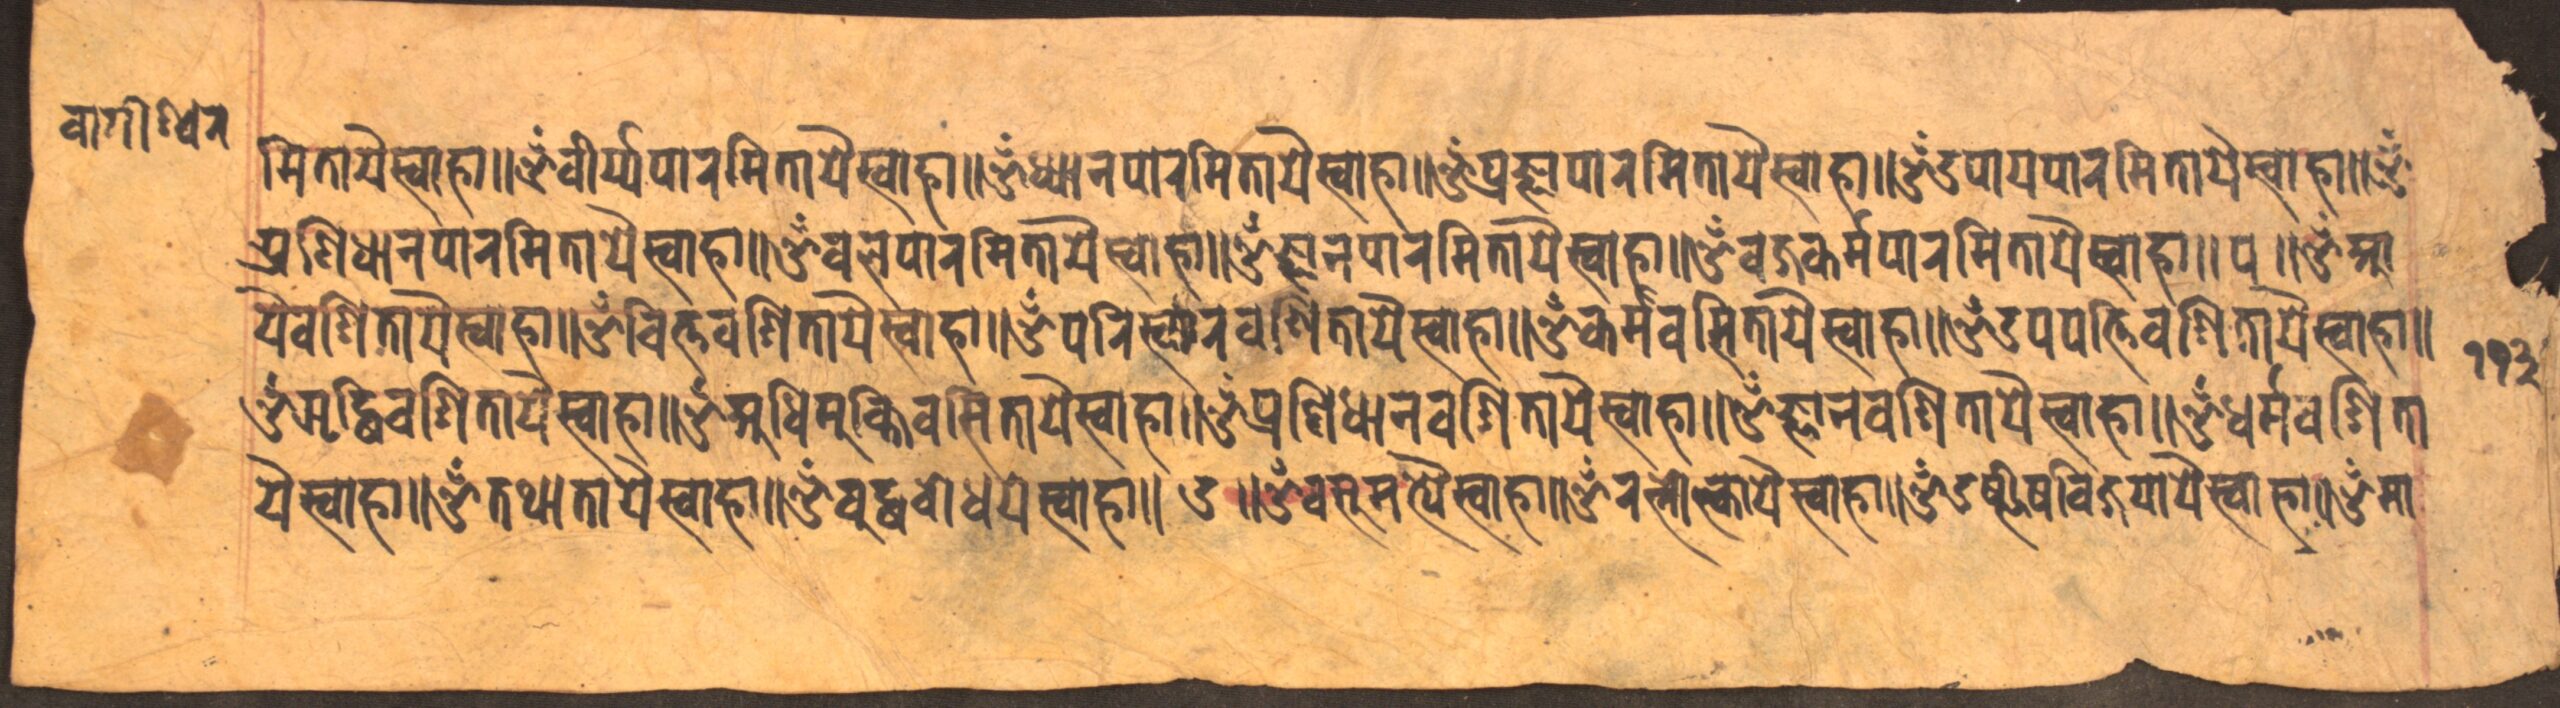 वागीश्वर
मितायैस्वाहा॥ॐवीर्य्यपारमितायैस्वाहा॥ॐध्यानपारमितायैस्वाहा॥ॐप्रज्ञापारमितायैस्वाहा॥ॐउपायपारमितायैस्वाहा॥ॐ
प्रणिधानपारमितायैस्वाहा॥ॐवलपारमितायैस्वाहा॥ॐज्ञानपारमितायैस्वाहा॥ॐवज्रकर्मपारमितायैस्वाहा॥प॥ॐआ
यैवशितायैस्वाहा॥ॐचित्तवशितायैस्वाहा॥ॐपरिस्कारवशितायैस्वाहा॥ॐकर्मवसितायैस्वाहा॥ॐउपपत्तिवशितायैस्वाहा॥
ॐऋद्धिवशितायैस्वाहा॥ॐअधिमुक्तिवसितायैस्वाहा॥ॐप्रणिधानवशितायैस्वाहा॥ॐज्ञानवशितायैस्वाहा॥ॐधर्मवशिता
यैस्वाहा॥ॐतथातायैस्वाहा॥ॐबुद्धबोधयेस्वाहा॥उ॥ॐवसुमत्यैस्वाहा॥ॐरत्नोल्कायैस्वाहा॥ॐउष्णीषविजयायैस्वाहा॥ॐमा
११३